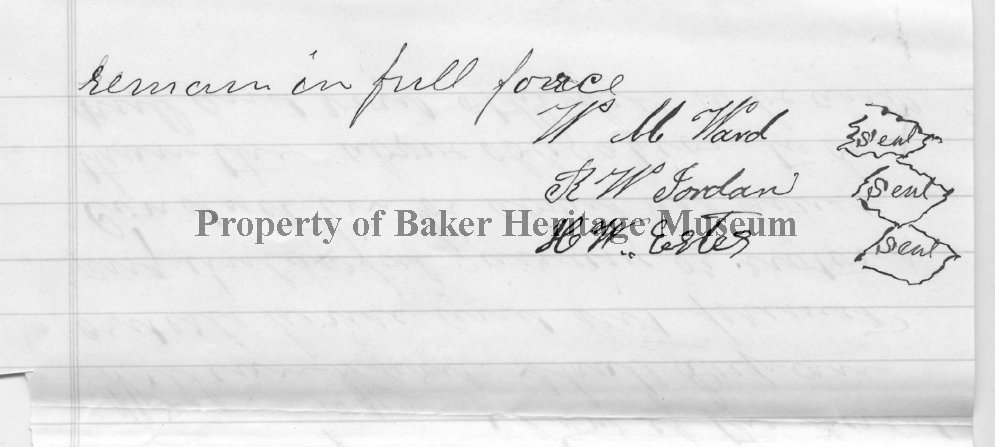 remain in full force
W M Ward Seal
R W Jordan Seal
Property of Baker Heritage Museum
H W. Estes Seal